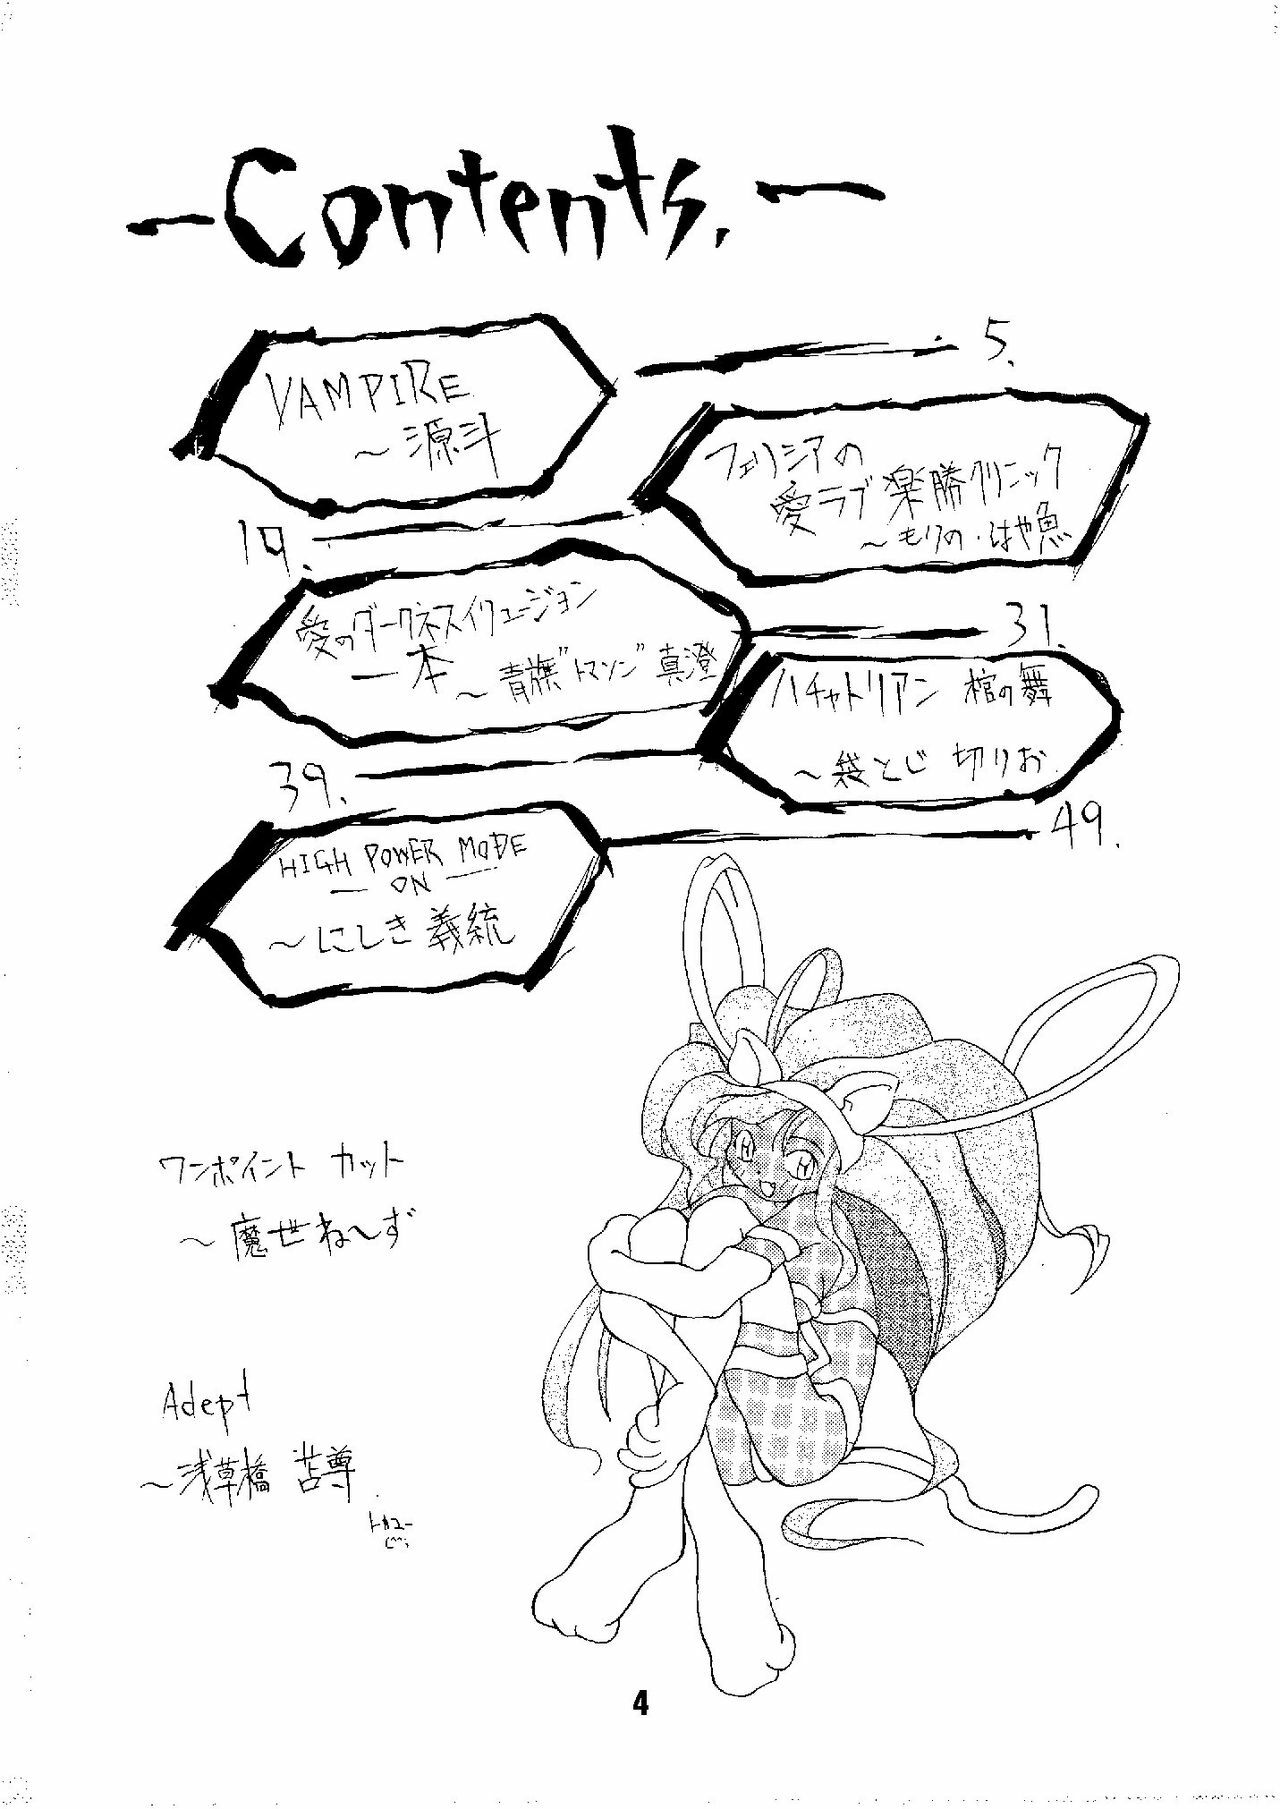 -Contents.-
VAMPIRE
～源斗
5.
フェリシアの
愛ラブ楽勝クリニック
～もりの・はや魚
19.
愛のダークネスイリュージョン
一本
～青旗"トマソン"真澄
31.
ハチャトリアン 棺の舞
～袋とじ 切りお
39.
HIGH POWER MODE
― ON ―
～にしき義統
49.
ワンポイント カット
～魔世ね～ず
Adept
～浅草橋 苫尊
4